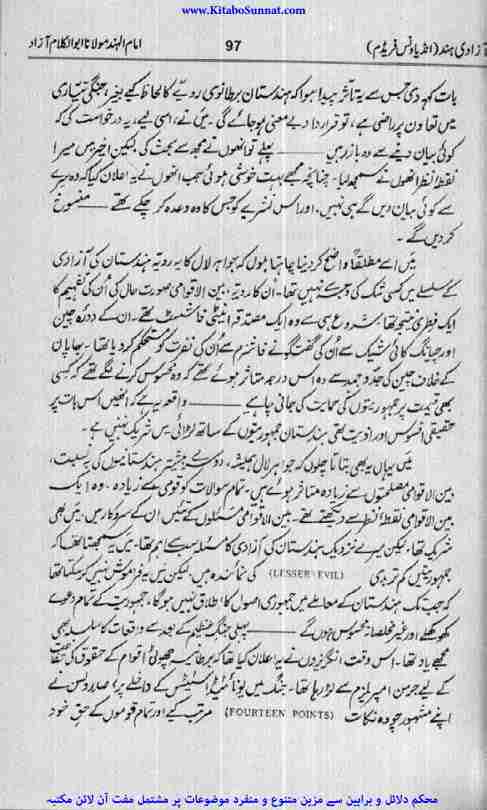 www.KitaboSunnat.com
آزادی ہند (انڈیا ونس فریڈم)
97
امام الہند مولانا ابوالکلام آزاد
بات کہہ دی جس سے یہ تاثر پیدا ہوا کہ ہندستان برطانوی رویّے کا لحاظ کیے بغیر جنگی تیاری
میں تعاون پر راضی ہے، تو قرارداد بے معنی ہو جائے گی۔ میں نے، اسی لیے، یہ درخواست کی کہ
کوئی بیان دینے سے وہ باز رہیں ــــــ پہلے تو انھوں نے مجھ سے بحث کی لیکن اخیر میں میرا
نقطۂ نظر انھوں نے سمجھ لیا۔ چنانچہ مجھے بہت خوشی ہوئی جب انھوں نے یہ اعلان کیا کہ وہ سرے
سے کوئی بیان دیں گے ہی نہیں۔ اور اس نشریے کو جس کا وہ وعدہ کر چکے تھے ــــــ منسوخ
کر دیں گے۔
میں اسے مطلقاً واضح کر دینا چاہتا ہوں کہ جواہر لال کا یہ رویّہ ہندستان کی آزادی
کے سلسلے میں کسی شک کی وجہ سے نہیں تھا۔ ان کا رویّہ، بین الاقوامی صورت حال کی اُن کی تفہیم کا
ایک فطری نتیجہ تھا۔ شروع ہی سے وہ ایک مصدقہ اینٹی فاشسٹ تھے۔ ان کے دورۂ چین
اور چیانگ کائی شیک سے اُن کی گفتگو نے فاشزم سے اُن کی نفرت کو مستحکم کر دیا تھا۔ جاپان
کے خلاف چین کی جدوجہد سے وہ اس درجہ متاثر ہوئے تھے کہ وہ محسوس کرنے لگے تھے کہ کسی
بھی قیمت پر جمہوریتوں کی حمایت کی جانی چاہیے ــــــ واقعہ یہ ہے کہ انھیں اس بات پر
حقیقی افسوس اور اذیت تھی ہندستان جمہوریتوں کے ساتھ لڑائی میں شریک نہیں ہے۔
میں یہاں یہ بھی بتاتا چلوں کہ جواہر لال ہمیشہ، دوسرے بیشتر ہندستانیوں کی بہ نسبت،
بین الاقوامی مصلحتوں سے زیادہ متاثر ہوئے ہیں۔ تمام سوالات کو قومی سے زیادہ، وہ ایک
بین الاقوامی نقطۂ نظر سے دیکھتے تھے۔ بین الاقوامی مسئلوں کے تئیں ان کے سروکار میں، میں بھی
شریک تھا، لیکن میرے نزدیک ہندستان کی آزادی کا مسئلہ سب سے اہم تھا۔ میں یہ سمجھتا تھا کہ
جمہوریتیں کم تر بدی (LESSER EVIL) کی نمائندہ ہیں، لیکن میں یہ فراموش نہیں کر سکتا تھا
کہ جب تک ہندستان کے معاملے میں جمہوری اصول کا اطلاق نہیں ہو گا، جمہوریت کے تمام دعوے
کھوکھلے اور غیر مخلصانہ محسوس ہوں گے ــــــ پہلی جنگ عظیم کے بعد سے واقعات کا سلسلہ بھی
مجھے یاد تھا۔ اس وقت انگریزوں نے یہ اعلان کیا تھا کہ برطانیہ چھوٹی اقوام کے حقوق کی حفاظت
کے لیے جرمن امپیریلزم سے لڑ رہا تھا۔ جنگ میں یونائیٹڈ اسٹیٹس کے داخلے پر، صدر ولسن نے
اپنے مشہور چودہ نکات (FOURTEEN POINTS) مرتب کیے اور تمام قوموں کے حق خود
محکم دلائل و براہین سے مزین متنوع و منفرد موضوعات پر مشتمل مفت آن لائن مکتبہ